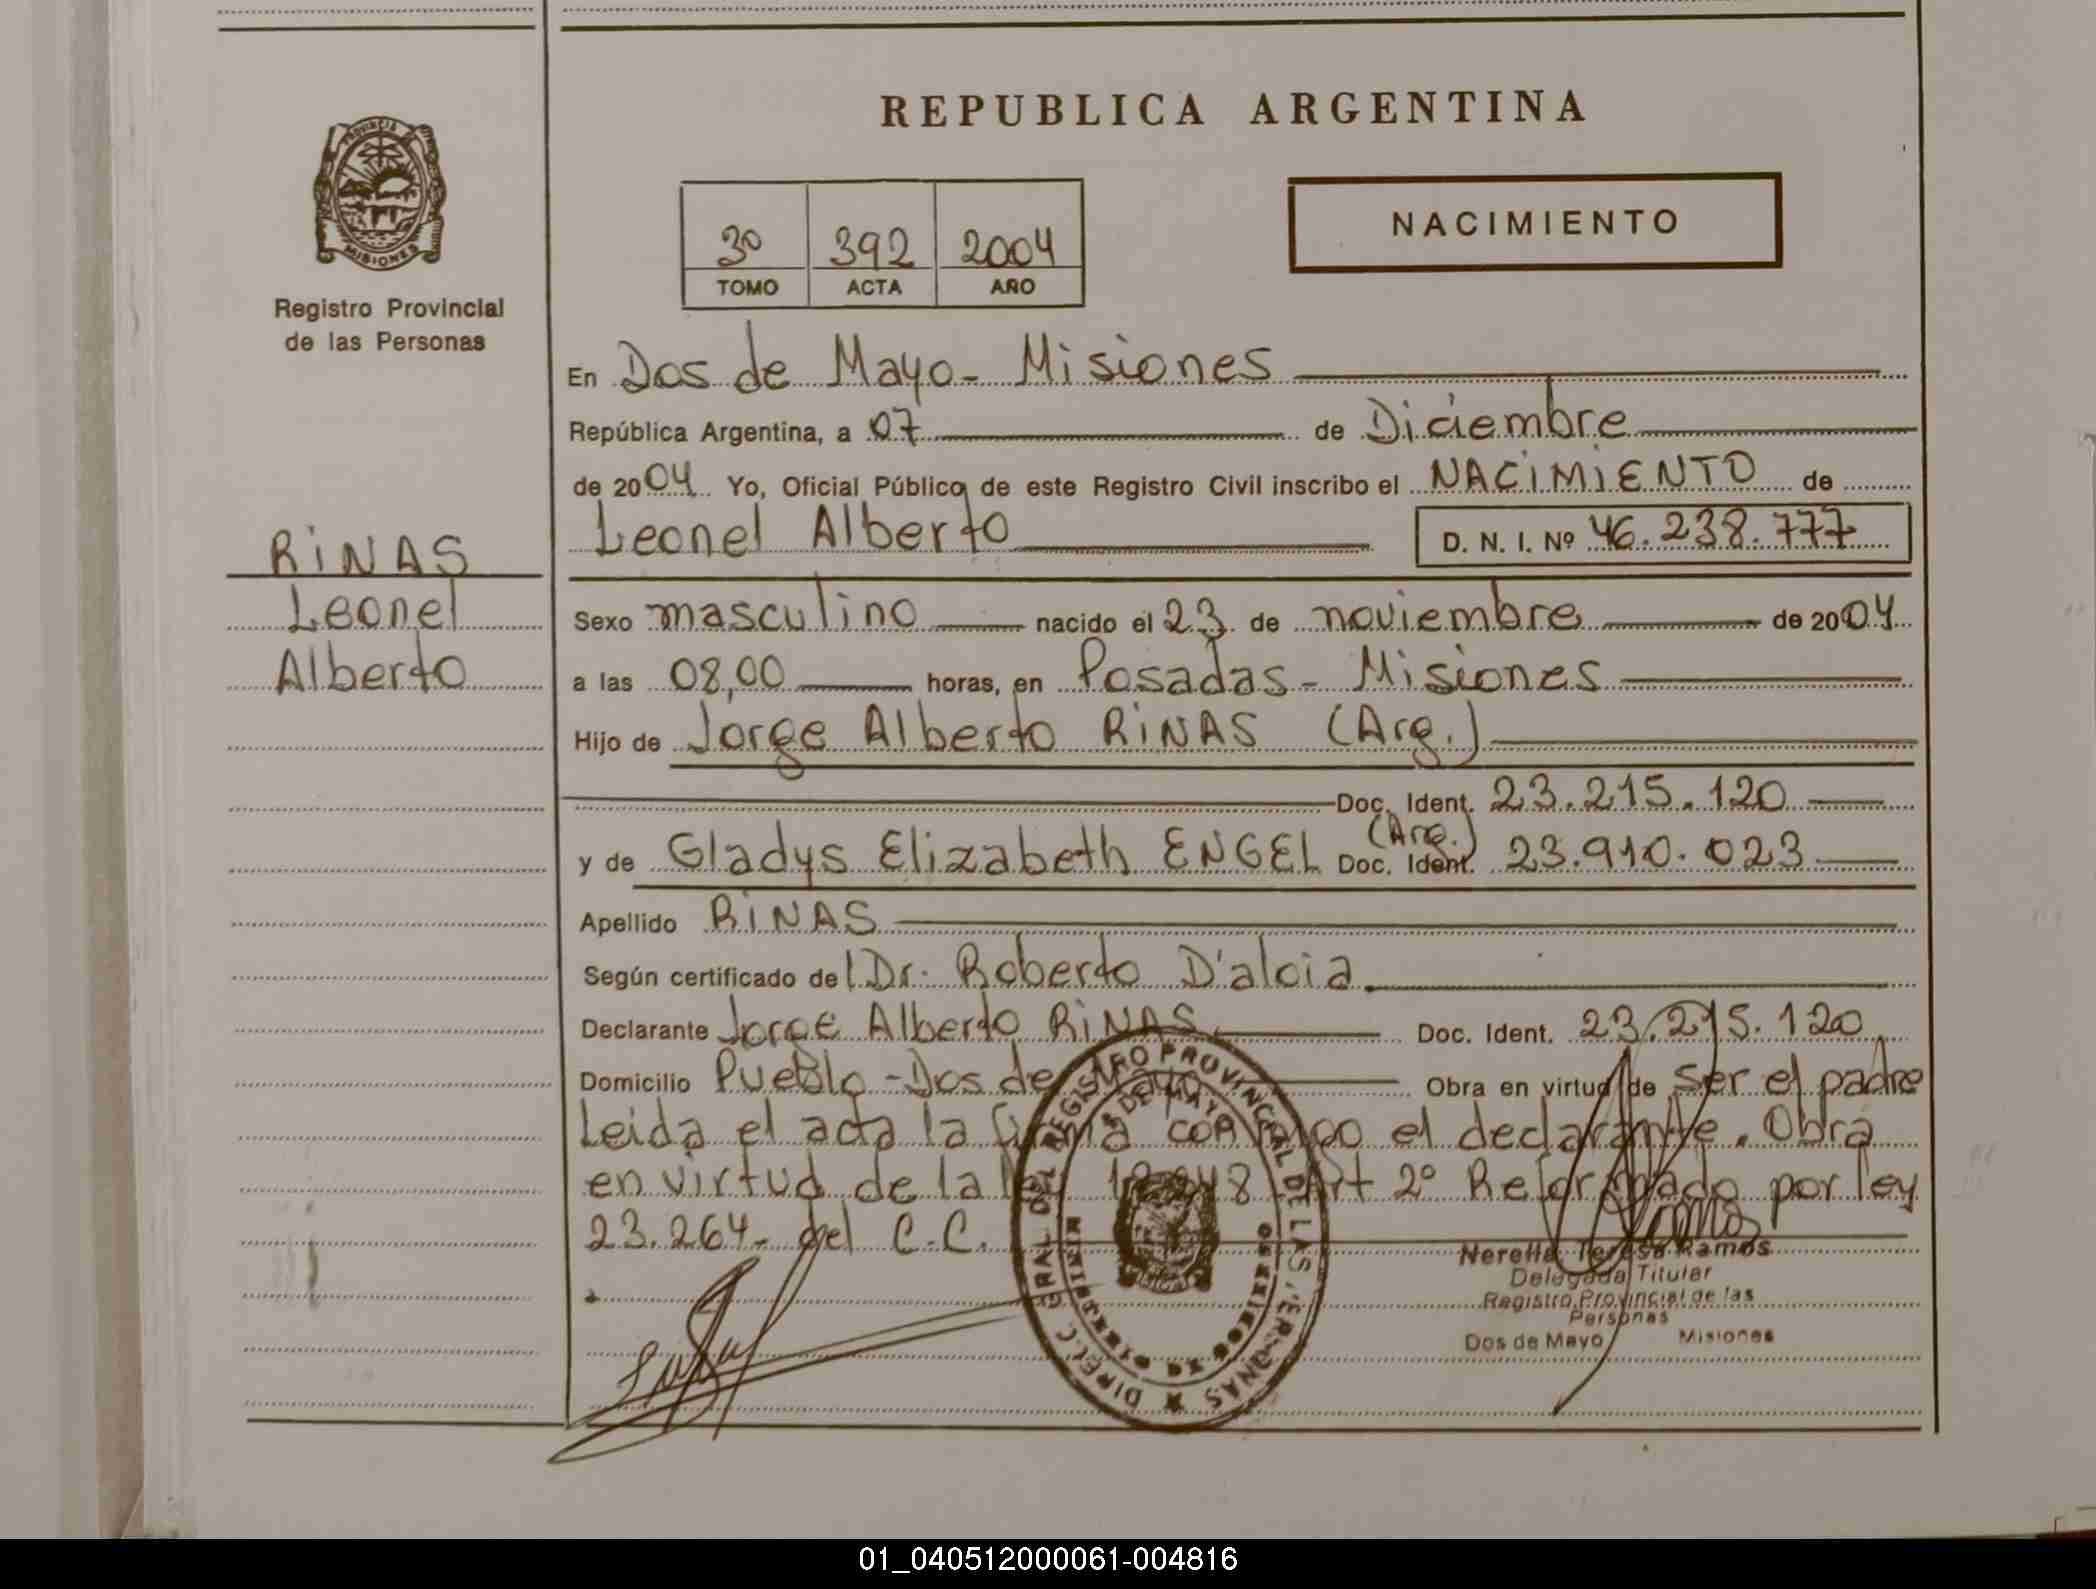 PROVINCIA
MISIONES
Registro Provincial
de las Personas
RiNAS
Leonel
Alberto
REPUBLICA ARGENTINA
3º 392 2004
TOMO ACTA AÑO
NACIMIENTO
En Dos de Mayo - Misiones
República Argentina, a 07 de Diciembre
de 2004 Yo, Oficial Público de este Registro Civil inscribo el NACiMiENTO de
Leonel Alberto D. N. I. Nº 46.238.777
Sexo masculino nacido el 23 de noviembre de 2004
a las 08,00 horas, en Posadas - Misiones
Hijo de Jorge Alberto RiNAS (Arg.)
Doc. Ident. 23.215.120
y de Gladys Elizabeth ENGEL (Arg.) Doc. Ident. 23.910.023
Apellido RiNAS
Según certificado del Dr. Roberto D'aloia
Declarante Jorge Alberto RiNAS Doc. Ident. 23.215.120
Domicilio Pueblo - Dos de Mayo Obra en virtud de ser el padre
Leida el acta la firma conmigo el declarante. Obra
en virtud de la Art 2º Reformado por ley
23.264 - del C.C.
DIREC. GRAL DEL REGISTRO PROVINCIAL DE LAS PERSONAS
DE MAYO
MINISTERIO DE GOBIERNO
Ramos
Teresa Ramos
Delegada Titular
Registro Provincial de las
Personas
Dos de Mayo Misiones
01_040512000061-004816